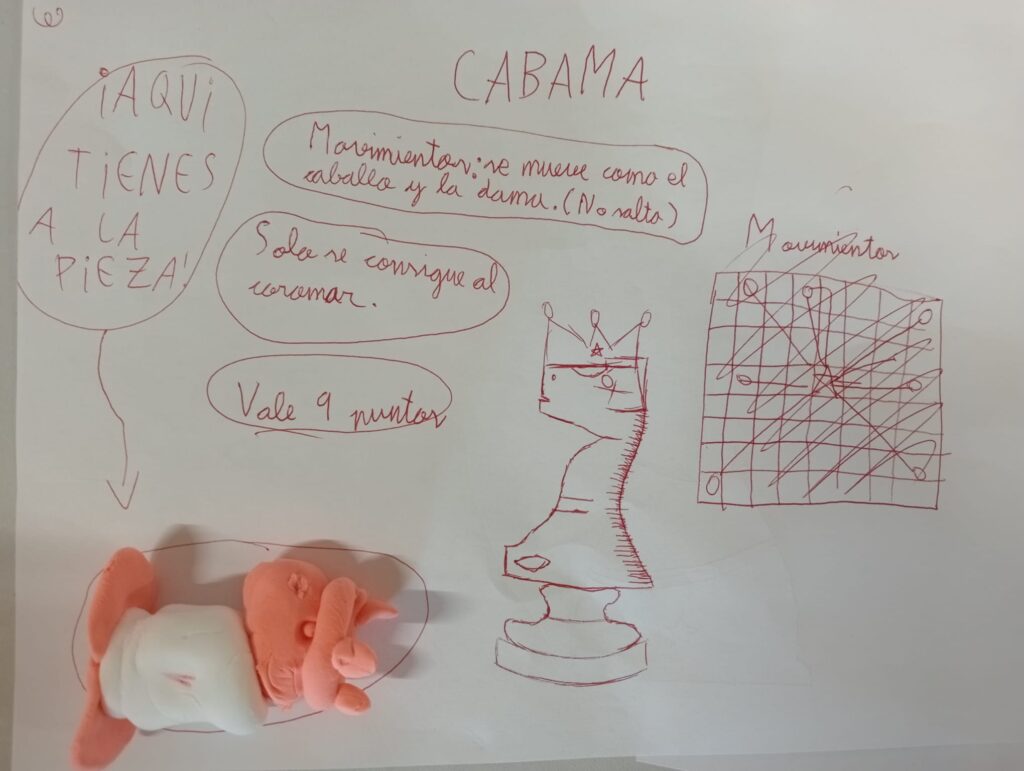 CABAMA
¡AQUI
TIENES
A LA
PIEZA!
Movimientos: se mueve como el
caballo y la dama. (No salta)
Solo se consigue al
coromar.
Vale 9 puntos
Movimientos